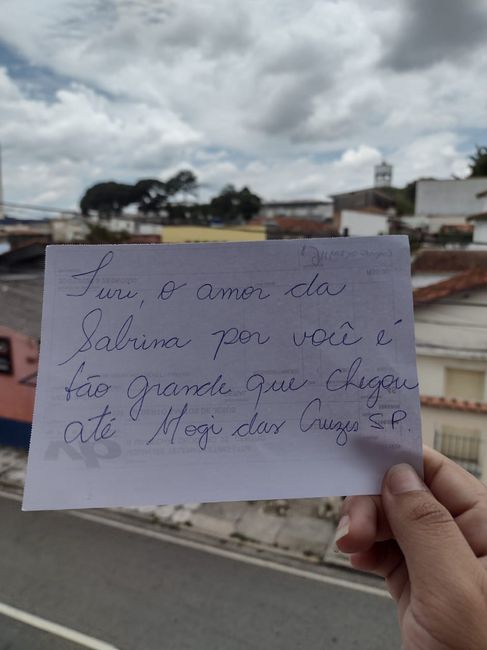 Yuri, o amor da
Sabrina por você é
tão grande que chegou
até Mogi das Cruzes SP.